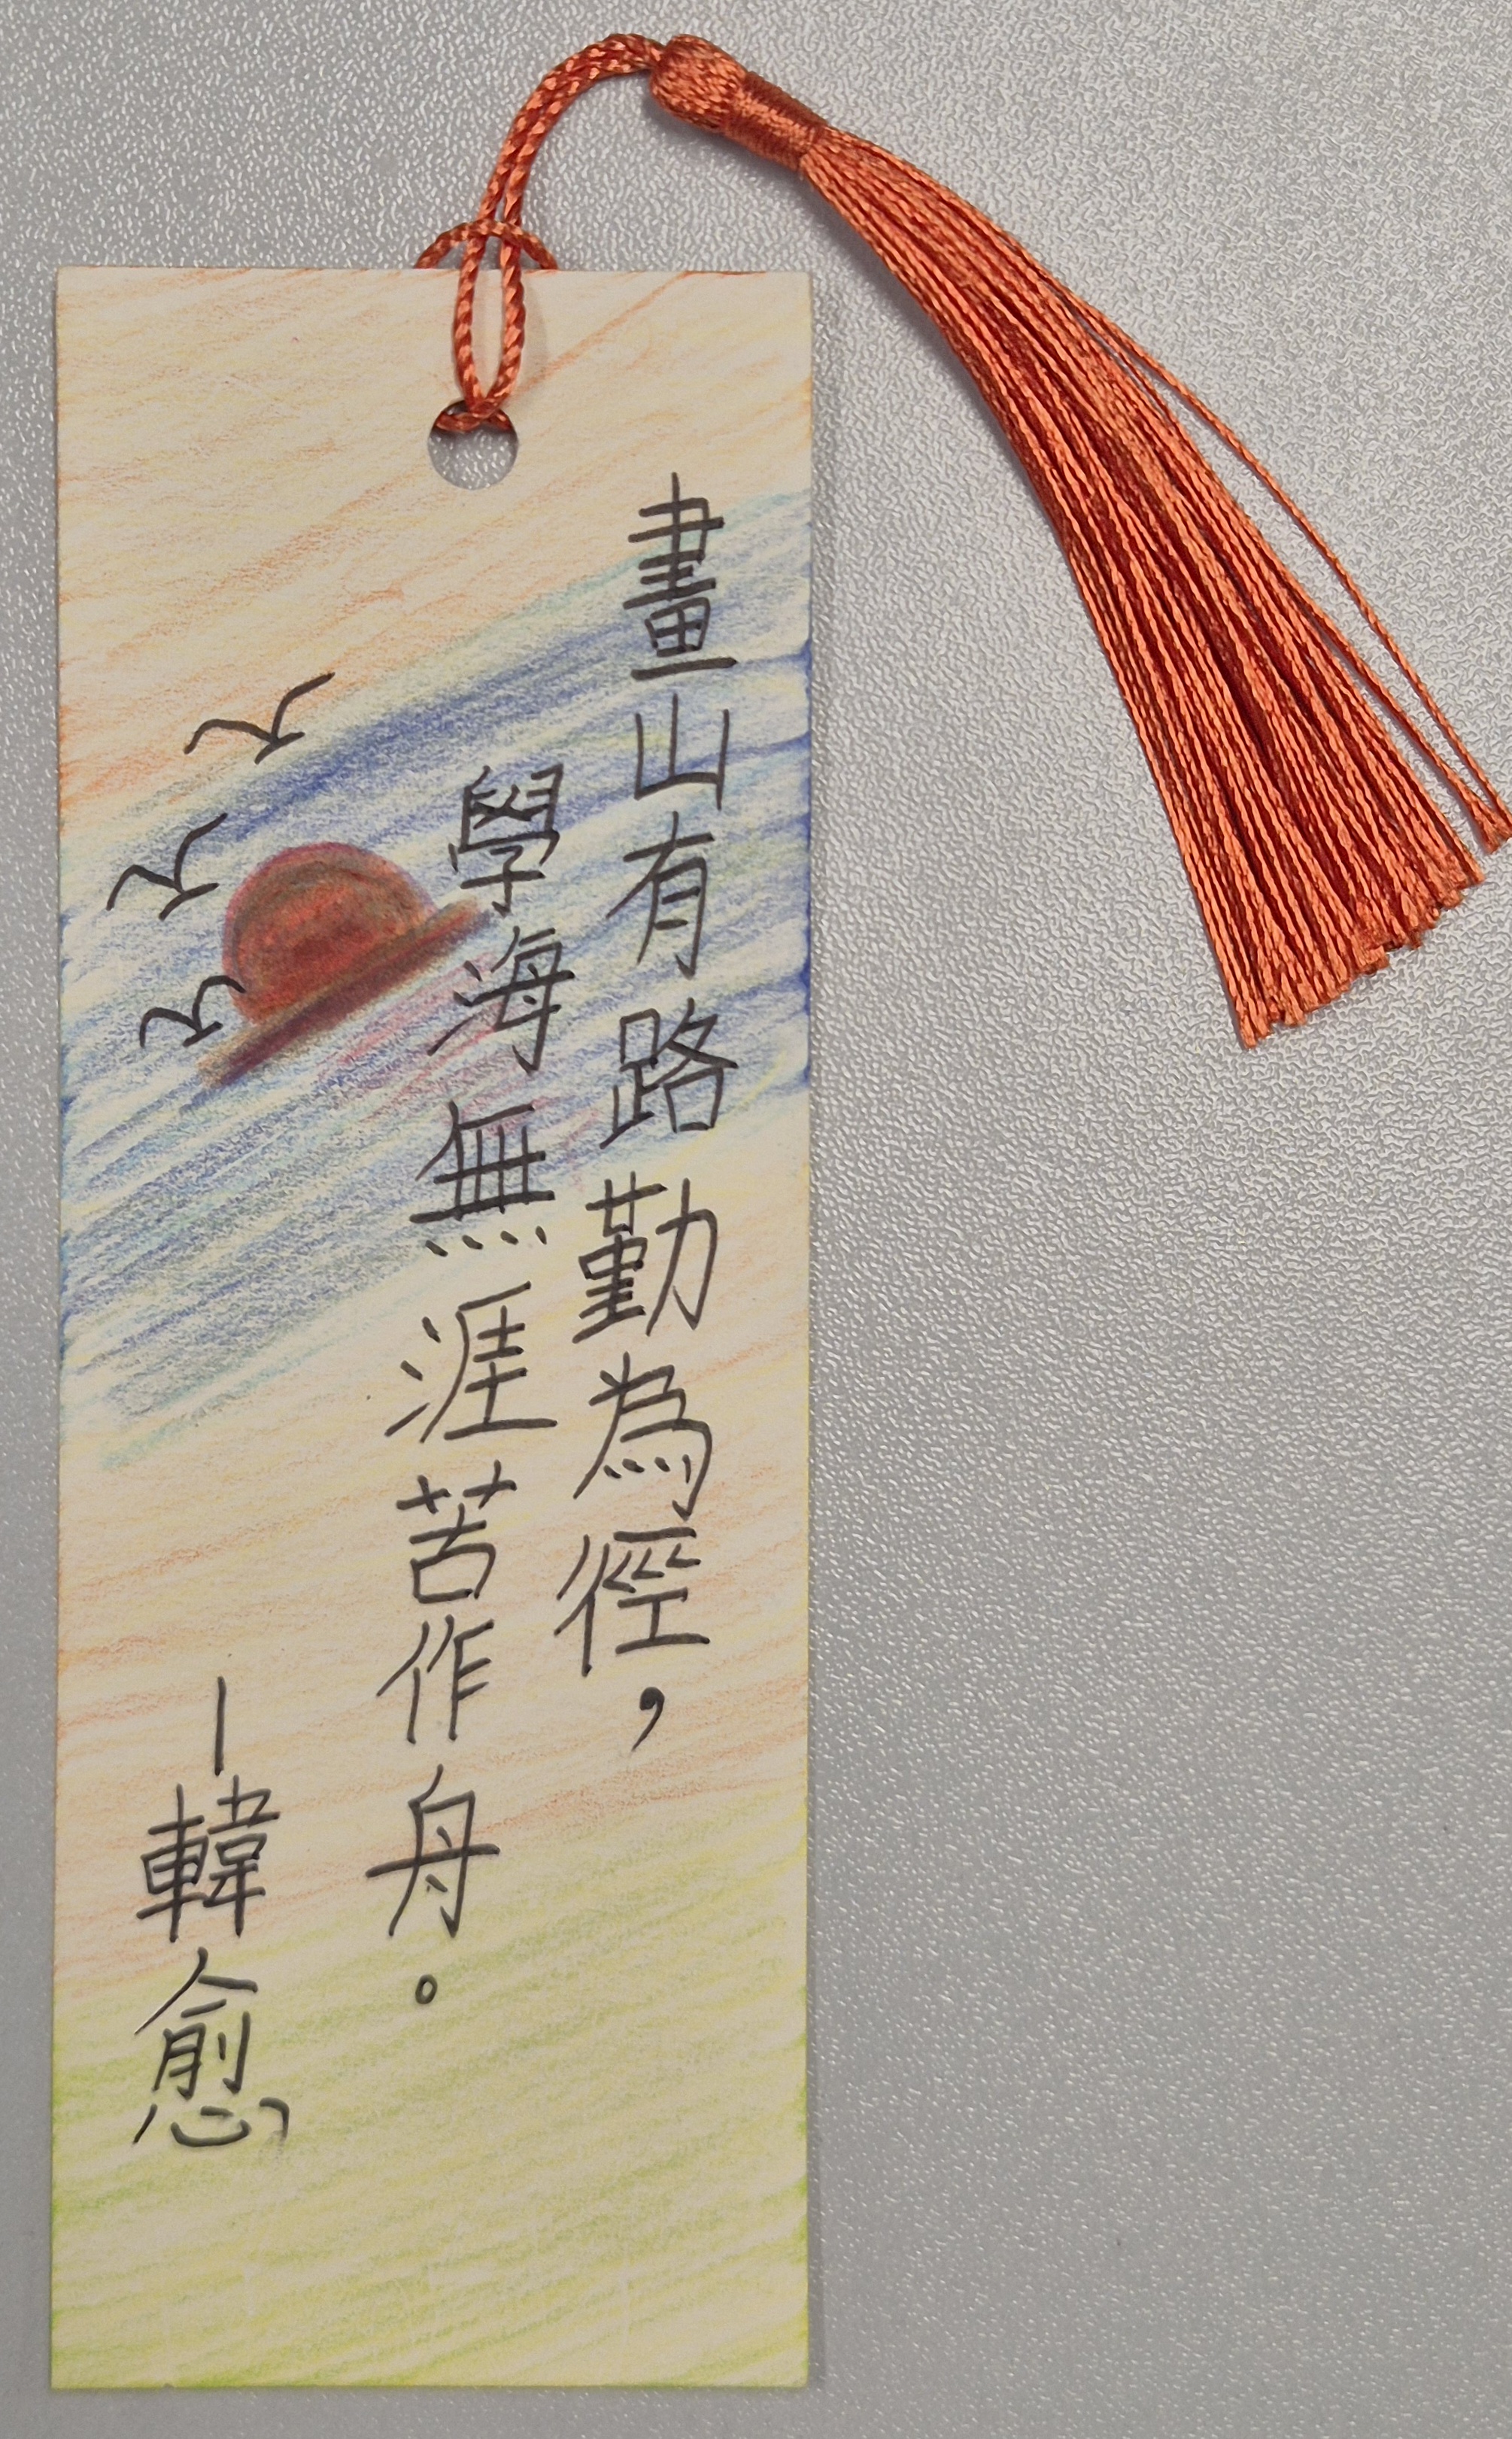 畫山有路勤為徑，
學海無涯苦作舟。
—韓愈